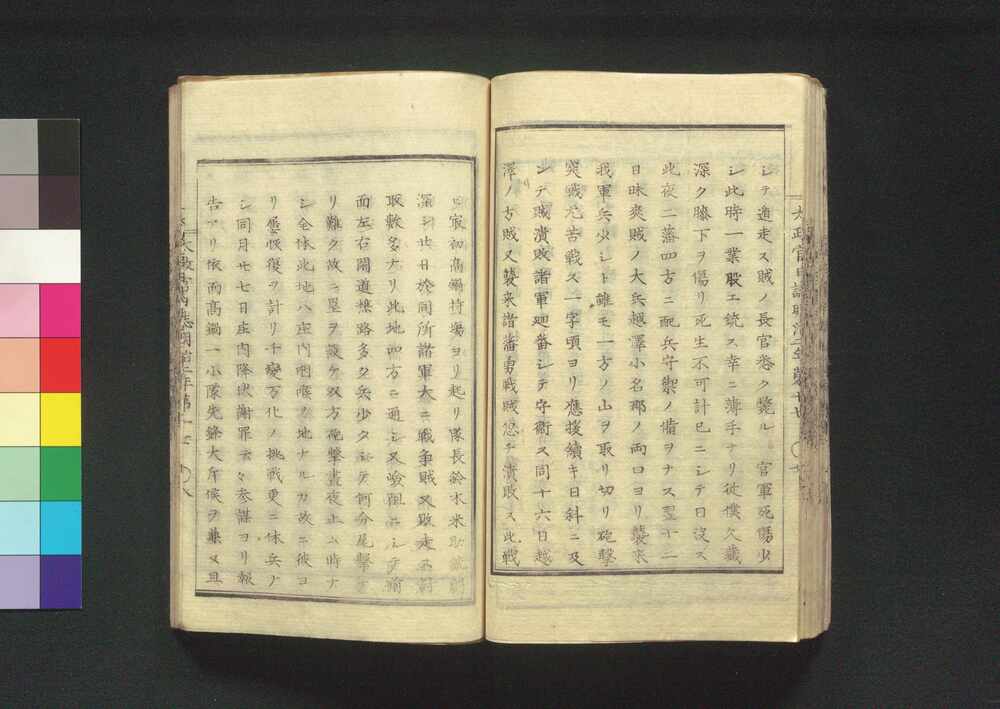 シテ遁走ス賊ノ長官悉ク斃ル　官軍死傷少
シ此時一業股エ銃ス幸ニ薄手ナリ従僕久蔵
深ク膝下ヲ傷リ死生不可計已ニシテ日没ス
此夜二藩四方ニ配兵守禦ノ備ヲナス翌十二
日昧爽賊ノ大兵越澤小名部ノ両口ヨリ襲来
我軍兵少シト雖モ一方ノ山ヲ取リ切リ砲撃
突戦尤苦戦ス一字頃ヨリ應援續キ日斜ニ及
シテ賊潰敗諸軍廻番シテ守衛ス同十六日越
澤ノ古賊又襲来諸藩勇戦賊忽チ潰敗ス此戦
ヨ最初高鍋持場ヨリ起リ隊長鈴木米助
深シ廿日於同所諸軍大ニ戦争賊又敗走
取数多ナリ此地四方ニ通シ又嶮阻ニシテ前
面左右間道樵路多ク兵少クシテ何分尾撃
リ難ク故ニ塁ヲ設ケ双方砲撃晝夜止ム時ナ
シ全体此地ハ庄内咽喉ノ地ナルカ故ニ彼ヨ
リ塁恢復ヲ計リ千變万化ノ挑戦更ニ休兵ノ
シ同月廿七日庄内降伏謝罪云々参謀ヨリ報
告アリ依而高鍋一小隊先鋒大斥候ヲ兼又且